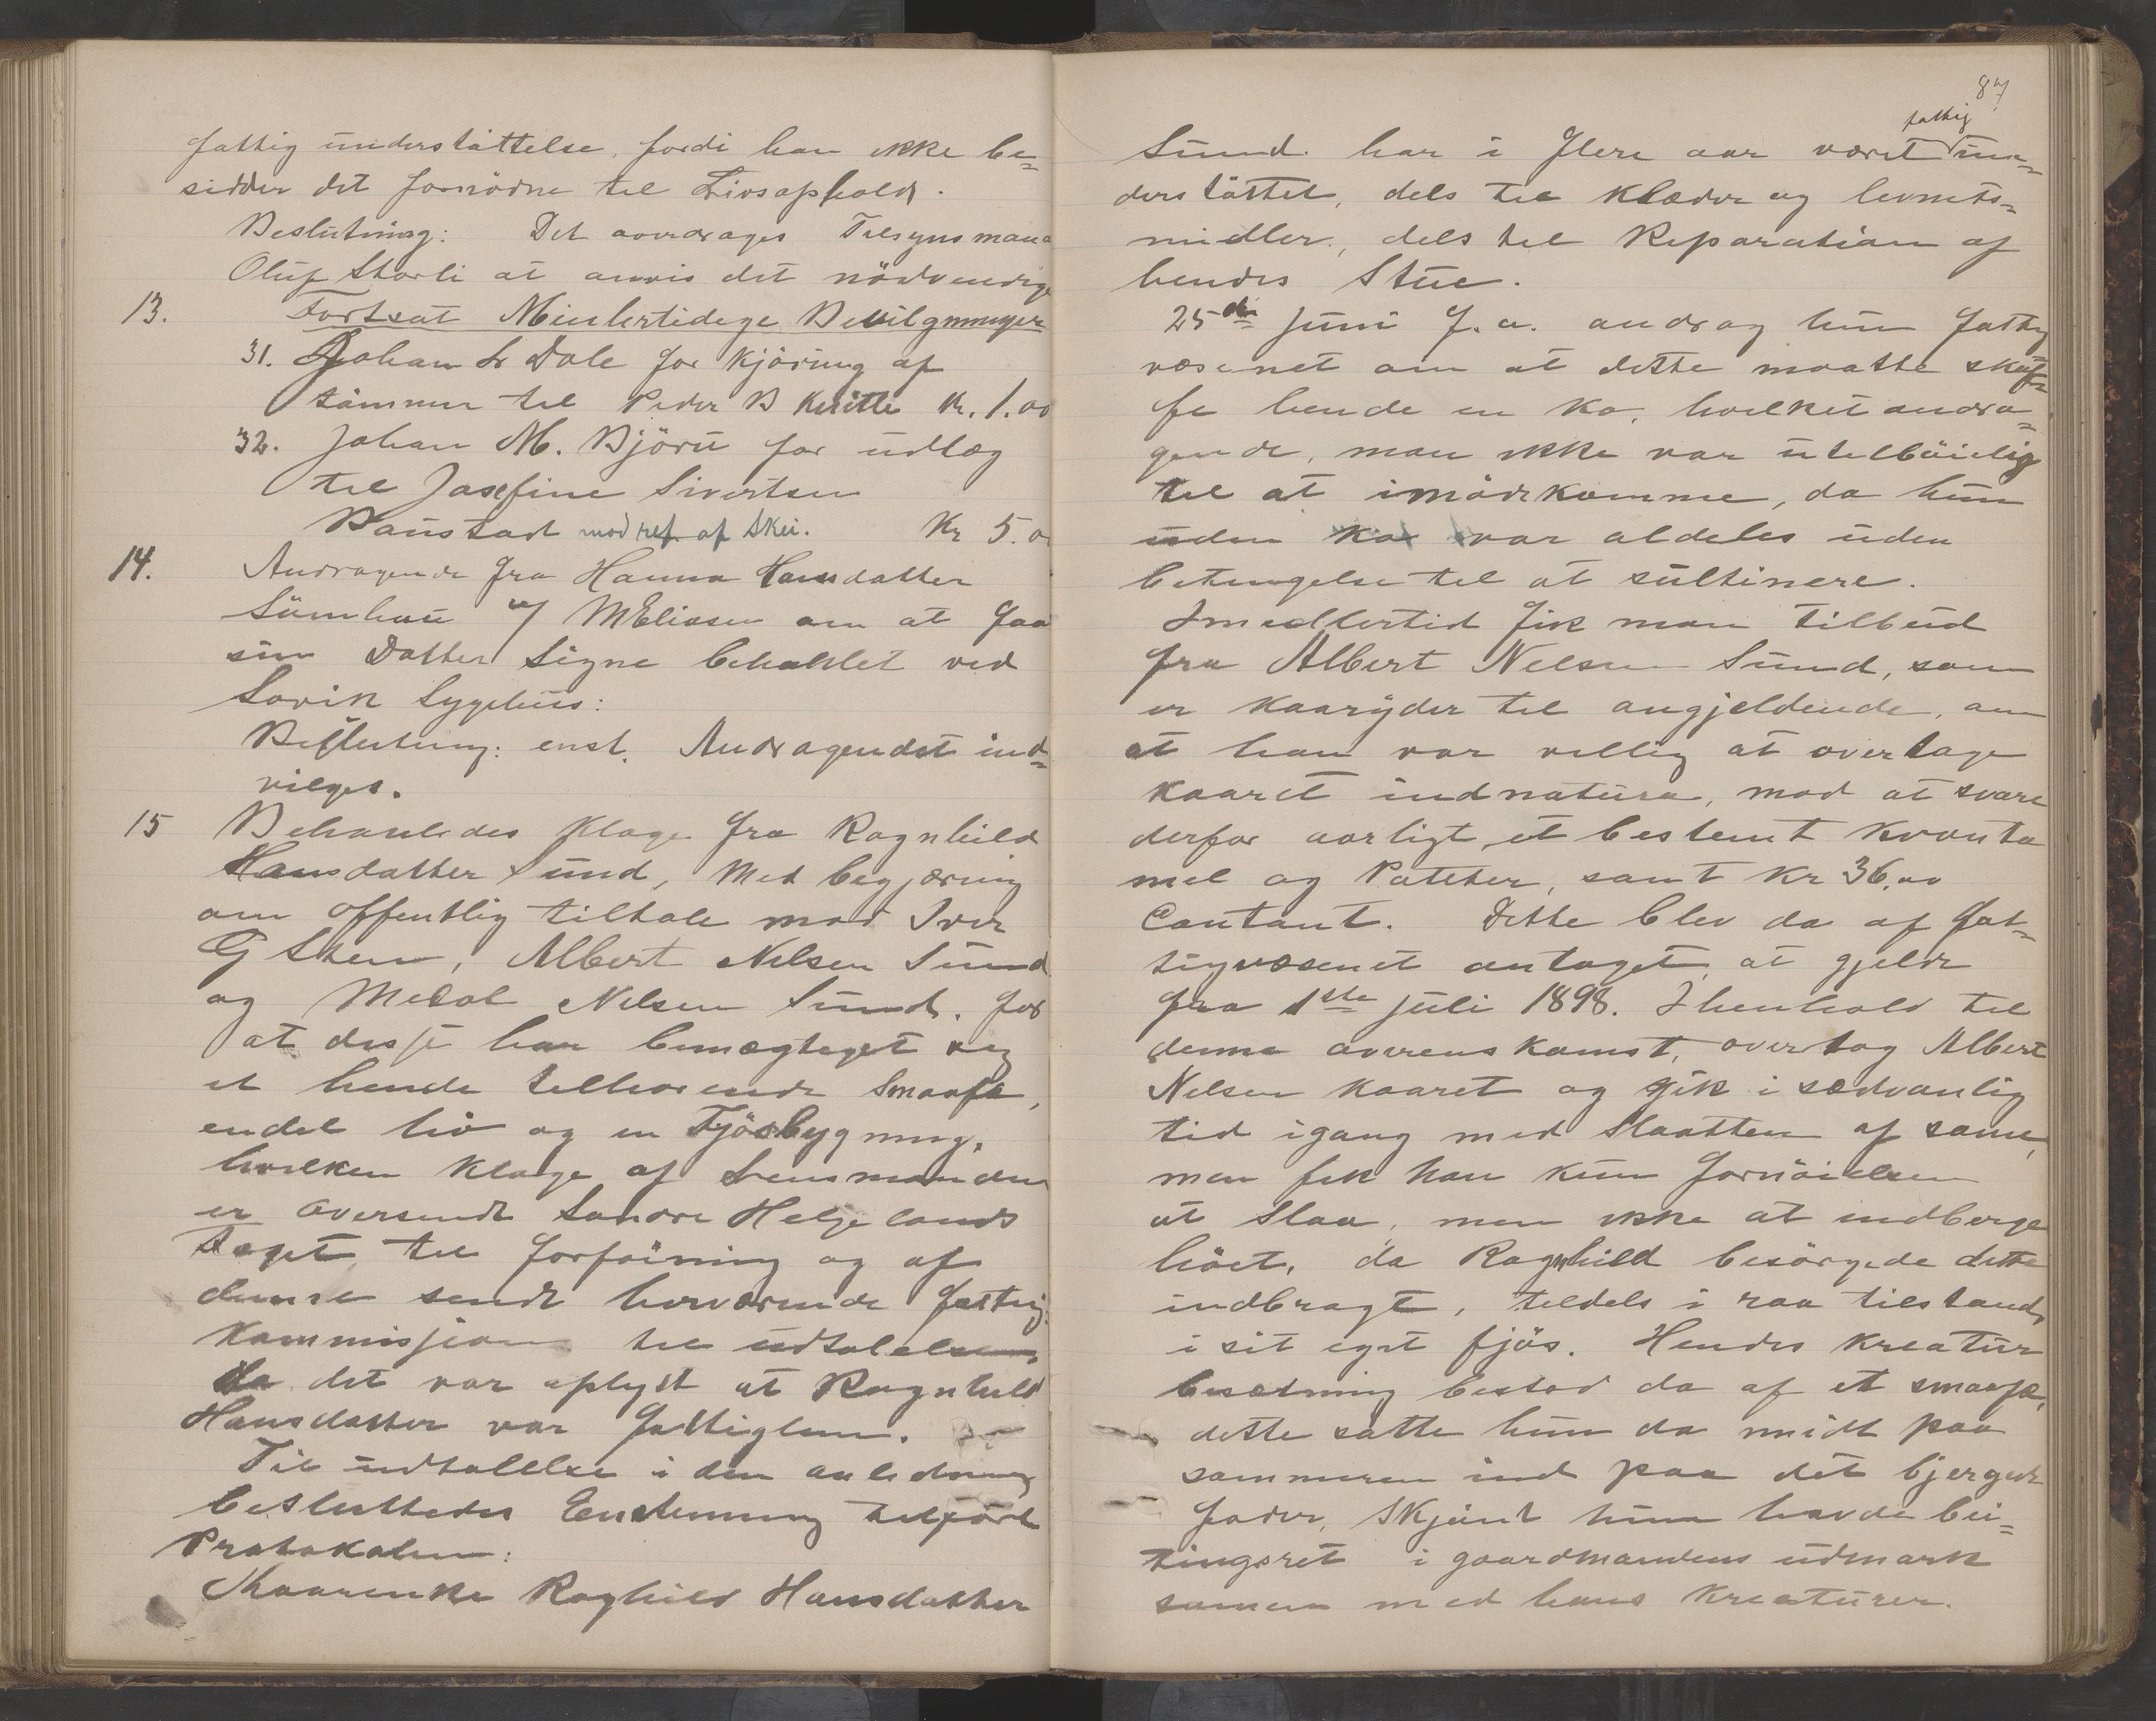 fattig understöttelse, fordi han ikke be=
sidder det fornödne til Livsophold.
Beslutning: Det overdrages Tilsynsmand
Oluf Storli at anvis det nödvendige
13. Fortsat Midlertidige Bevilgninger
31. Johan Dale for kjöring af
tömmer til Peder B Kr. 1.00
32. Johan M. Björu for udlæg
til Josefine Sivertsen
Baustad mod ref. af Skei. Kr 5.0
14. Andragende fra Hanna Hansdatter
Sömhau v/ M Eliasen om at faa
sin Datter Signe behandlet ved
Sovik Sygehus:
Beslutning: enst. Andragendet ind=
vilges.
15 Behandledes Klage fra Ragnhild
Hansdatter Sund, Med begjæring
om offentlig tiltale mod Iver
G Steen, Albert Nelsen Sund
og Medol Nelsen Sund, for
at disse har bemægtiget sig
et hende tilhörende Smaafæ,
endel hö og en Fjösbygning,
hvilken Klage af Lensmanden
er oversendt Söndre Helgelands
til forföining og af
denne sendt herværende fattig
Kommission til udtalelse,
da det var oplyst at Ragnhild
Hansdatter var fattiglem.
Til udtalelse i den anledning
besluttedes Enstemmig tilfört
Protokolen:
Kaarenke Raghild Hansdatter
87
fattig
Sund. har i flere aar været un=
derstöttet, dels til Klæder og levnets=
midler, dels til Reparation af
hendes Stue.
25de Juni f.a. androg hun fattig
væsenet om at dette maatte skaf=
fe hende en ko, hvilket andra=
gende, man ikke var utilböielig
til at imödekomme, da hun
uden ko var aldeles uden
betingelse til at sultinere.
Imedlertid fik man tilbud
fra Albert Nelsen Sund, som
er kaaryder til angjeldende, om
at han var villig at overtage
kaaret indnatura, mod at svare
derfor aarligt et bestemt kvanta
mel og Poteter, samt Kr 36.00
Contant. Dette blev da af fat=
tigvæsenet antaget, at gjelde
fra 1ste juli 1898. I henhold til
denne overenskomst, overtog Albert
Nelsen kaaret og gik i sædvanlig
tid igang med Slaatten af same,
men fik han kun fornöielsen
at Slaa, men ikke at indberge
höet, da Ragnhild besörgede dette
indbragt, tildels i raa tilstand,
i sit eget fjös. Hendes kreatur
besætning bestod da af et smaafæ,
dette satte hun da midt paa
sommeren ind paa det bjergede
foder, Skjönt hun havde bei=
tingsret i gaardmandens udmark
sammen med hans Kreaturer.